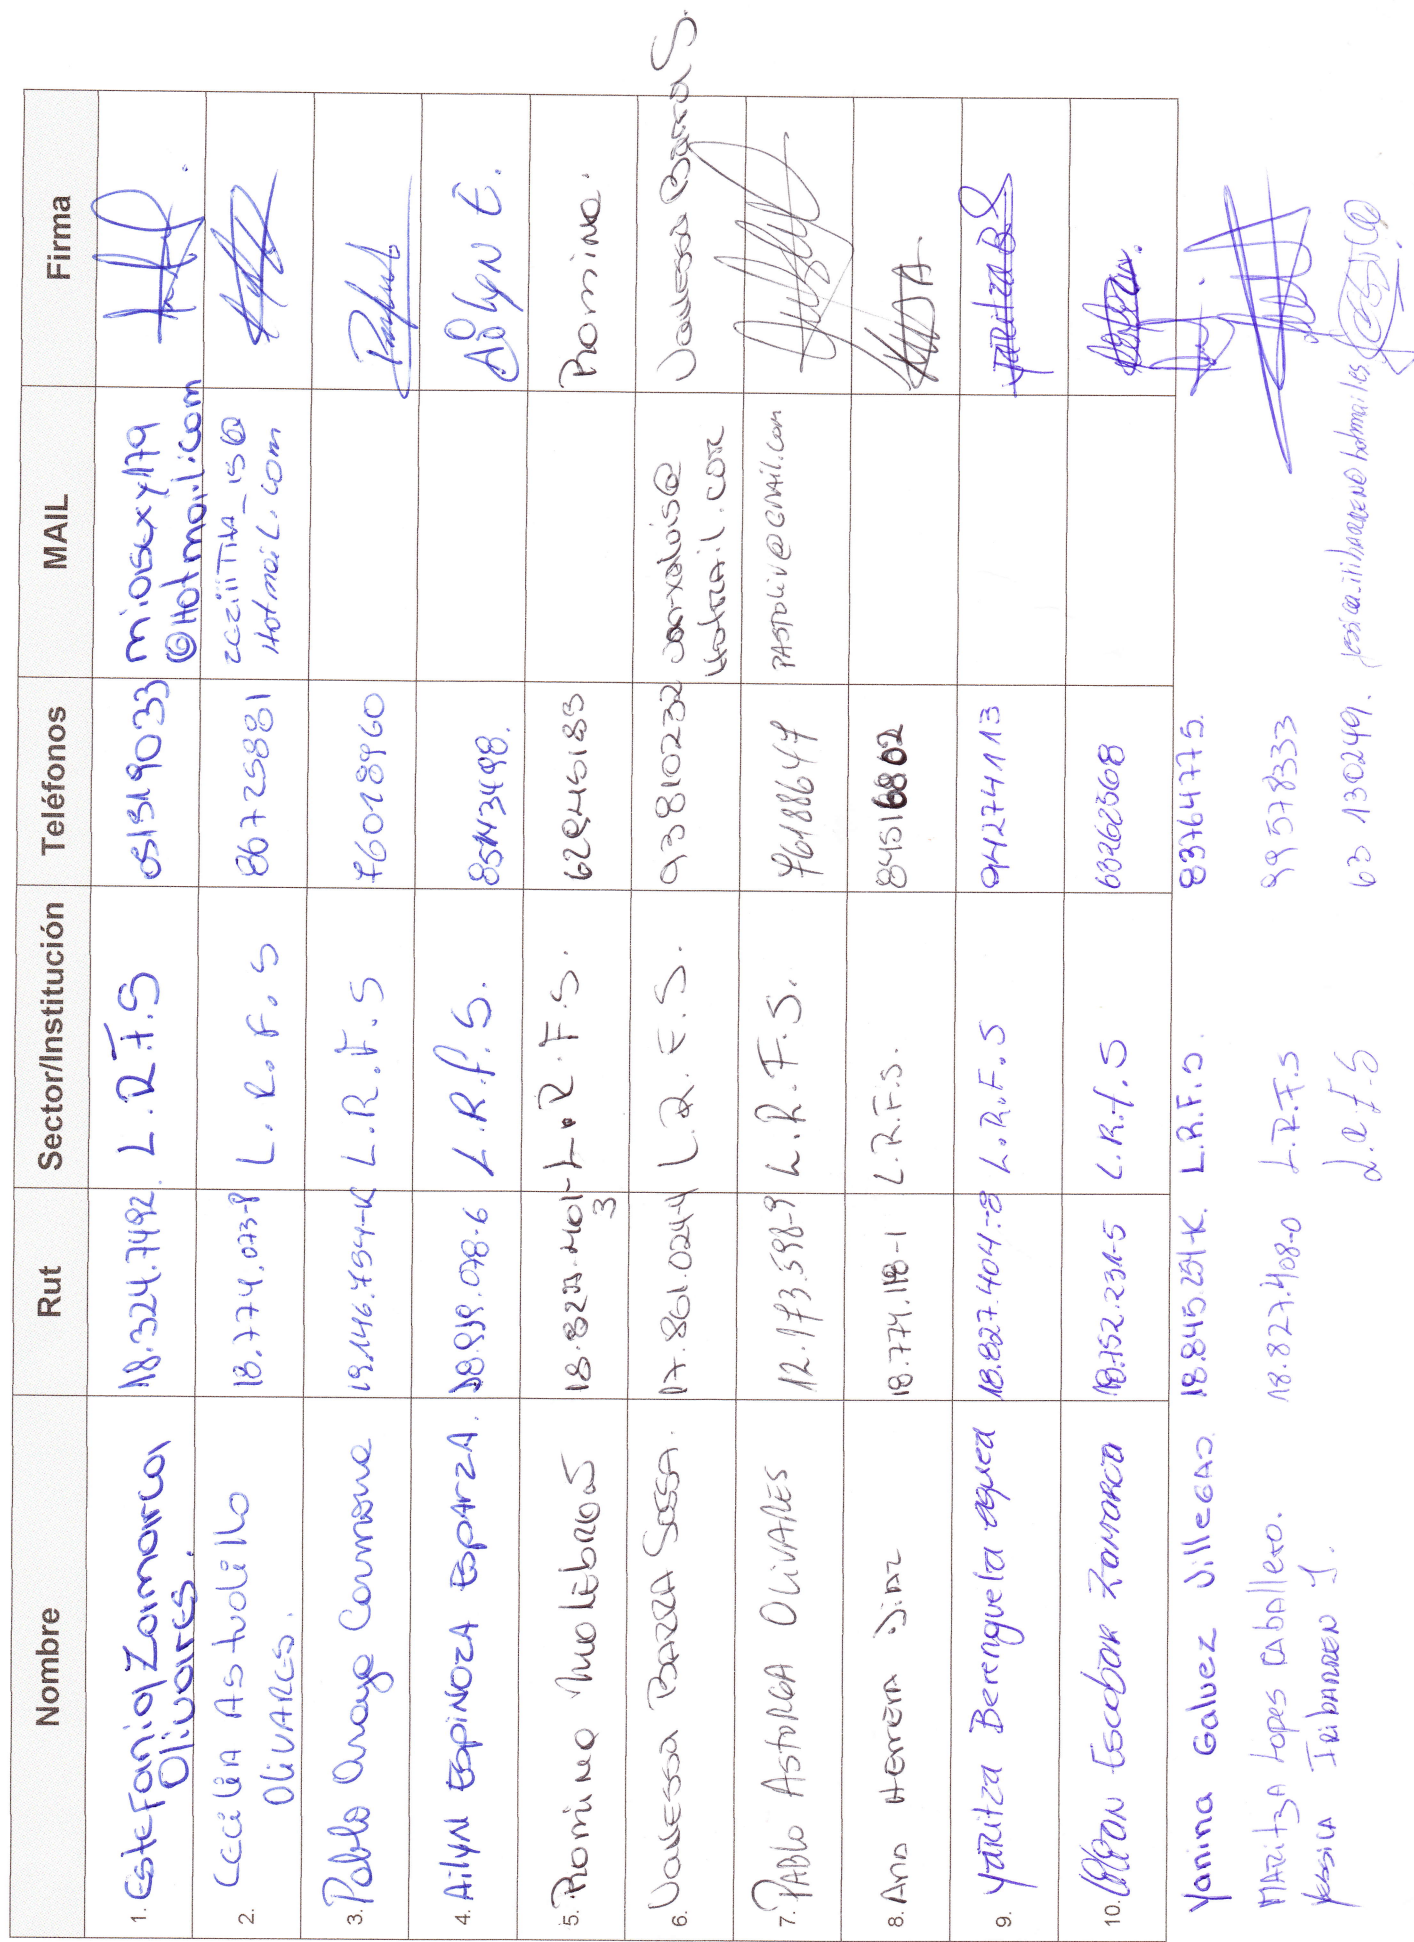 Nombre Rut Sector/Institución Teléfonos MAIL Firma
1. Estefania Zamarca 18.324.7492. L.R.F.S 95319033 miosexy179
Olivares. @Hotmail.com
2. Cecilia Astudillo 18.774.073-8 L.R.F.S 86725881 zeziiTiia_15@
OlivARES. Hotmail.com
3. Pablo Araya Carmona 19.146.754-K L.R.F.S 76018960
4. AilyN EspiNOZA EspArzA. 18.939.078-6 L.R.F.S. 85143498. AilyN E.
5. Romina 18.827.401- L.R.F.S. 62845185 Romina.
3
6. Vanessa BARRA Sossa. 17.861.0244 L.R.F.S. 93810232
Hotmail.com
7. PABLO ASTORGA OliVARES 12.173.598-9 L.R.F.S. 76188647 PASTOLIV@GMAIL.com
8. Ana HerrerA DiAZ 18.774.118-1 L.R.F.S. 84516802
9. YaRitza Berenguela 18.827.404-8 L.R.F.S 94274113 YARitzaB
10. Escobar Zamarca 18.152.231-5 L.R.F.S 63262568
Yanina Galvez VilleGAS. 18.845.254-K. L.R.F.S. 83764775.
MARitzA Lopes CabAllero. 18.827.408-0 L.R.F.S 99578333
Jessica IRibARREN J. L.R.F.S 63 130249.